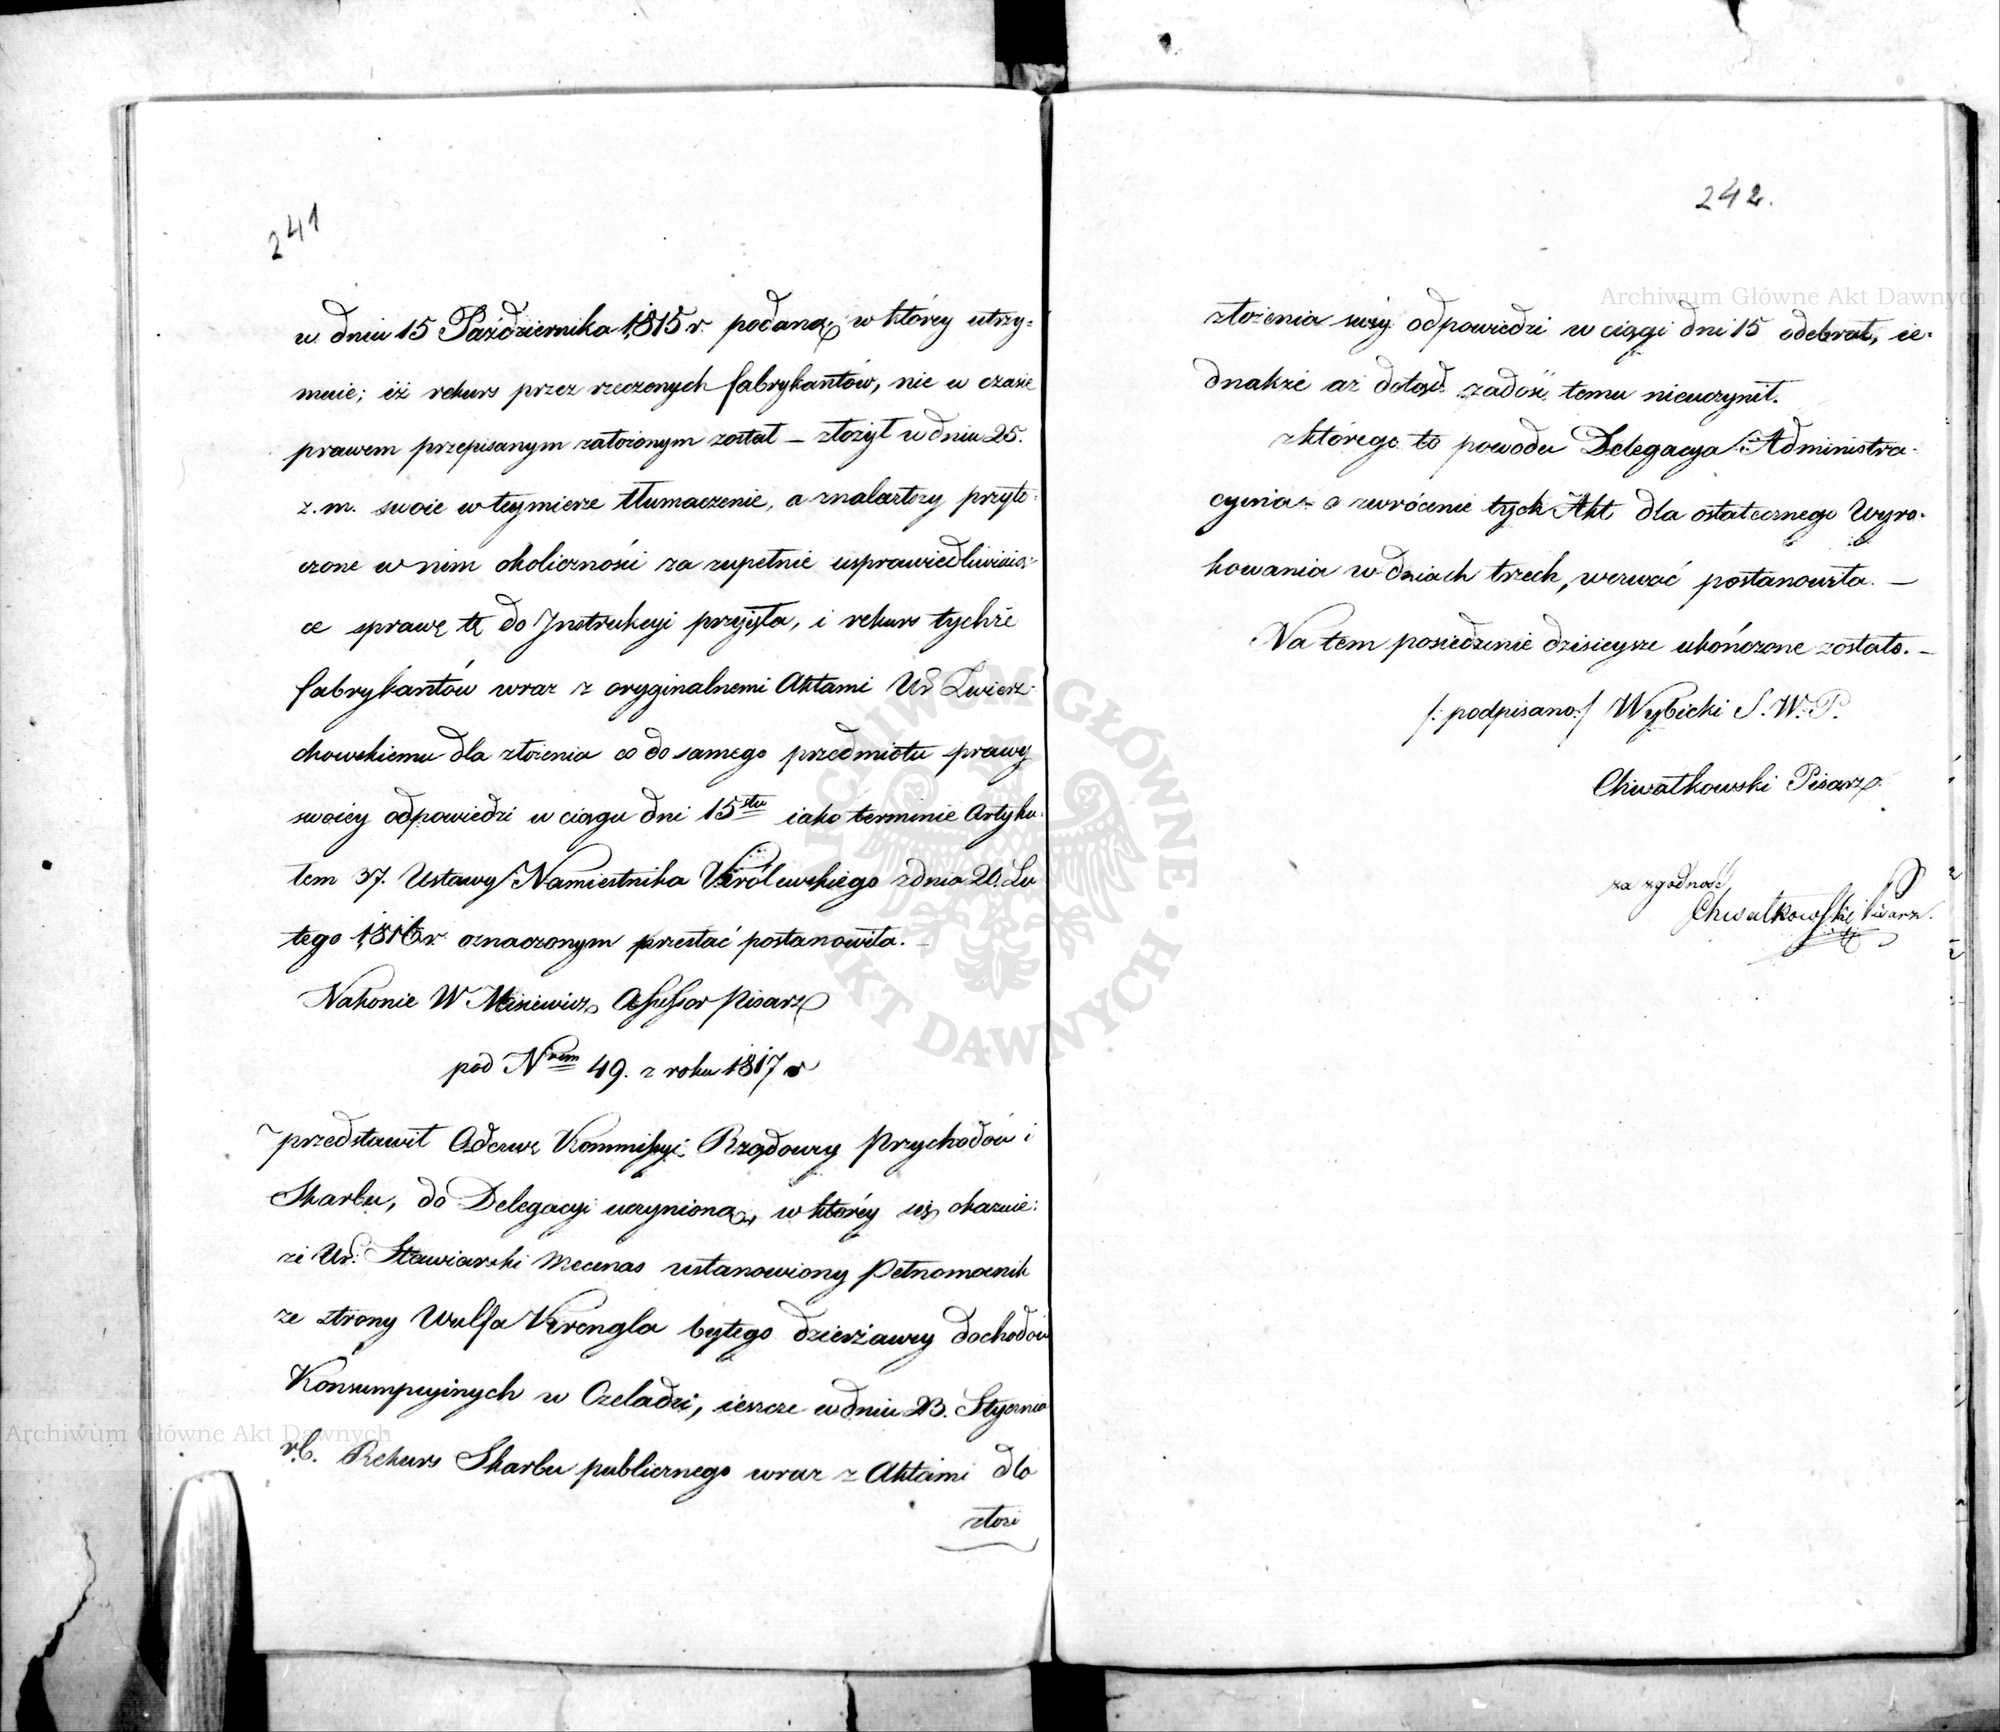 241
w dniu 15 Października 1815 r. podaną, w którey utrzy=
muie; iż rekurs przez rzeczonych fabrykantów, nie w czasie
prawem przepisanym założonym został — złożył w dniu 25.
z. m. swoie w teymierze tłumaczenie, a znalazłszy przyto=
czone w nim okoliczności za zupełnie usprawiedliwiaią=
ce sprawę tę do Instrukcyi przyięła, i rekurs tychże
fabrykantów wraz z oryginalnemi Aktami Ur Zwierz=
chowskiemu dla złożenia co do samego przedmiotu sprawy
swoiey odpowiedzi w ciągu dni 15stu iako terminie Artyku=
łem 37. Ustawy Namiestnika Królewskiego z dnia 20. Lu
tego 1816 r oznaczonym przesłać postanowiła. —
Nakonie W Assessor Pisarz
pod Nrem 49. z roku 1817 r
przedstawił Odezwę Kommissyi Rządowey Przychodów i
Skarbu, do Delegacyi uczynioną, w którey się okazuie:
że Ur: Stawiarski Mecenas ustanowiony Pełnomocnik
ze strony Wulfa Krengla byłego dzierżawcy dochodów
Konsumpcyinych w Czeladzi, ieszcze w dniu 23. Stycznia
r. b. Rekurs Skarbu publicznego wraz z Aktami dla
złoże
242.
złożenia swéy odpowiedzi w ciągi dni 15 odebrał, ie=
dnakże aż dotąd zadość temu nieuczynił.
z którego to powodu Delegacya Administra=
cyina o zwrócenie tych Akt dla ostatecznego Wyro=
kowania w dniach trzech, wezwać postanowiła. —
Na tem posiedzenie dzisieysze ukończone zostało. —
/: podpisano :/ Wybicki S. W. P.
Chwałkowski Pisarz.
za zgodność
Chwałkowski Pisarz.
Archiwum Główne Akt Dawnych
Archiwum Główne Akt Dawnych
ARCHIWUM GŁÓWNE AKT DAWNYCH